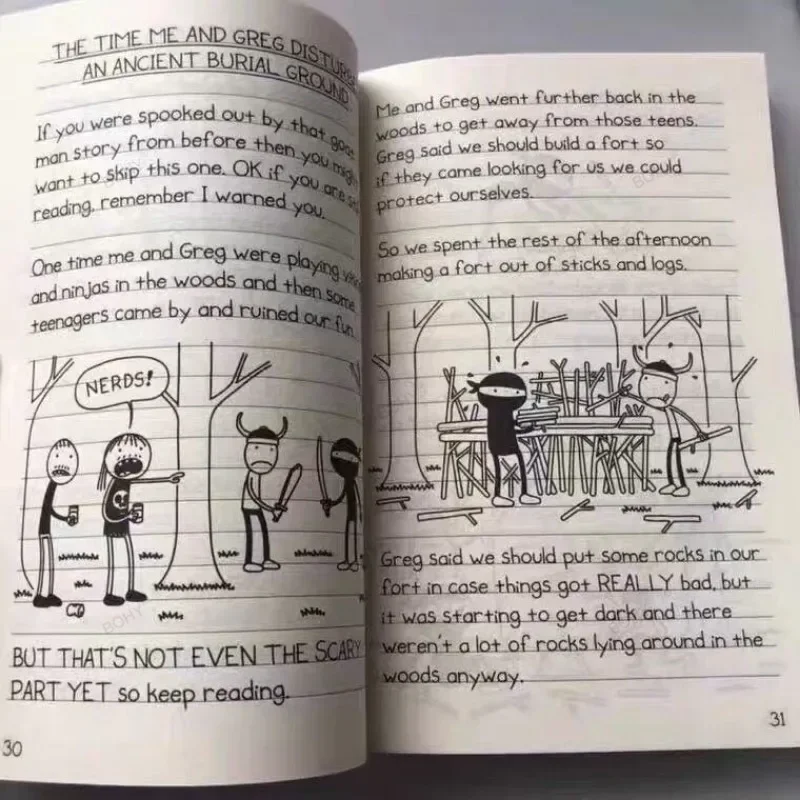 THE TIME ME AND GREG
AN ANCIENT BURIAL GROUND
If you were spooked out by that goat
man story from before then you might
want to skip this one. OK if you are
reading, remember I warned you.
One time me and Greg were playing
and ninjas in the woods and then some
teenagers came by and ruined our fun.
NERDS!
BUT THAT'S NOT EVEN THE SCARY
PART YET so keep reading.
30
Me and Greg went further back in the
woods to get away from those teens.
Greg said we should build a fort so
if they came looking for us we could
protect ourselves.
So we spent the rest of the afternoon
making a fort out of sticks and logs.
Greg said we should put some rocks in our
fort in case things got REALLY bad, but
it was starting to get dark and there
weren't a lot of rocks lying around in the
woods anyway.
31
BOHY